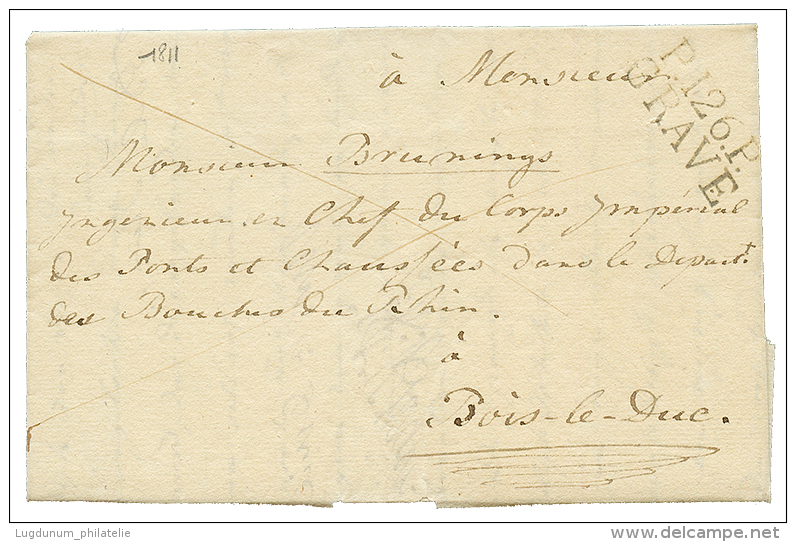 1811
à Monsieur
P.126.P.
GRAVE
Monsieur Brunings
Ingénieur en Chef du Corps Impérial
des Ponts et Chaussées dans le Depart.t
des Bouches du Rhin.
à
Bois-le-Duc.
Lugdunum_philatelie
delcampe.net